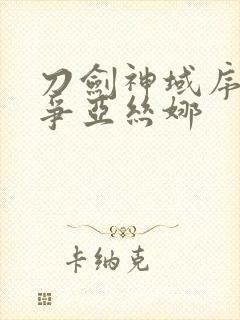 刀劍神域序
爭亞絲娜
卡納克